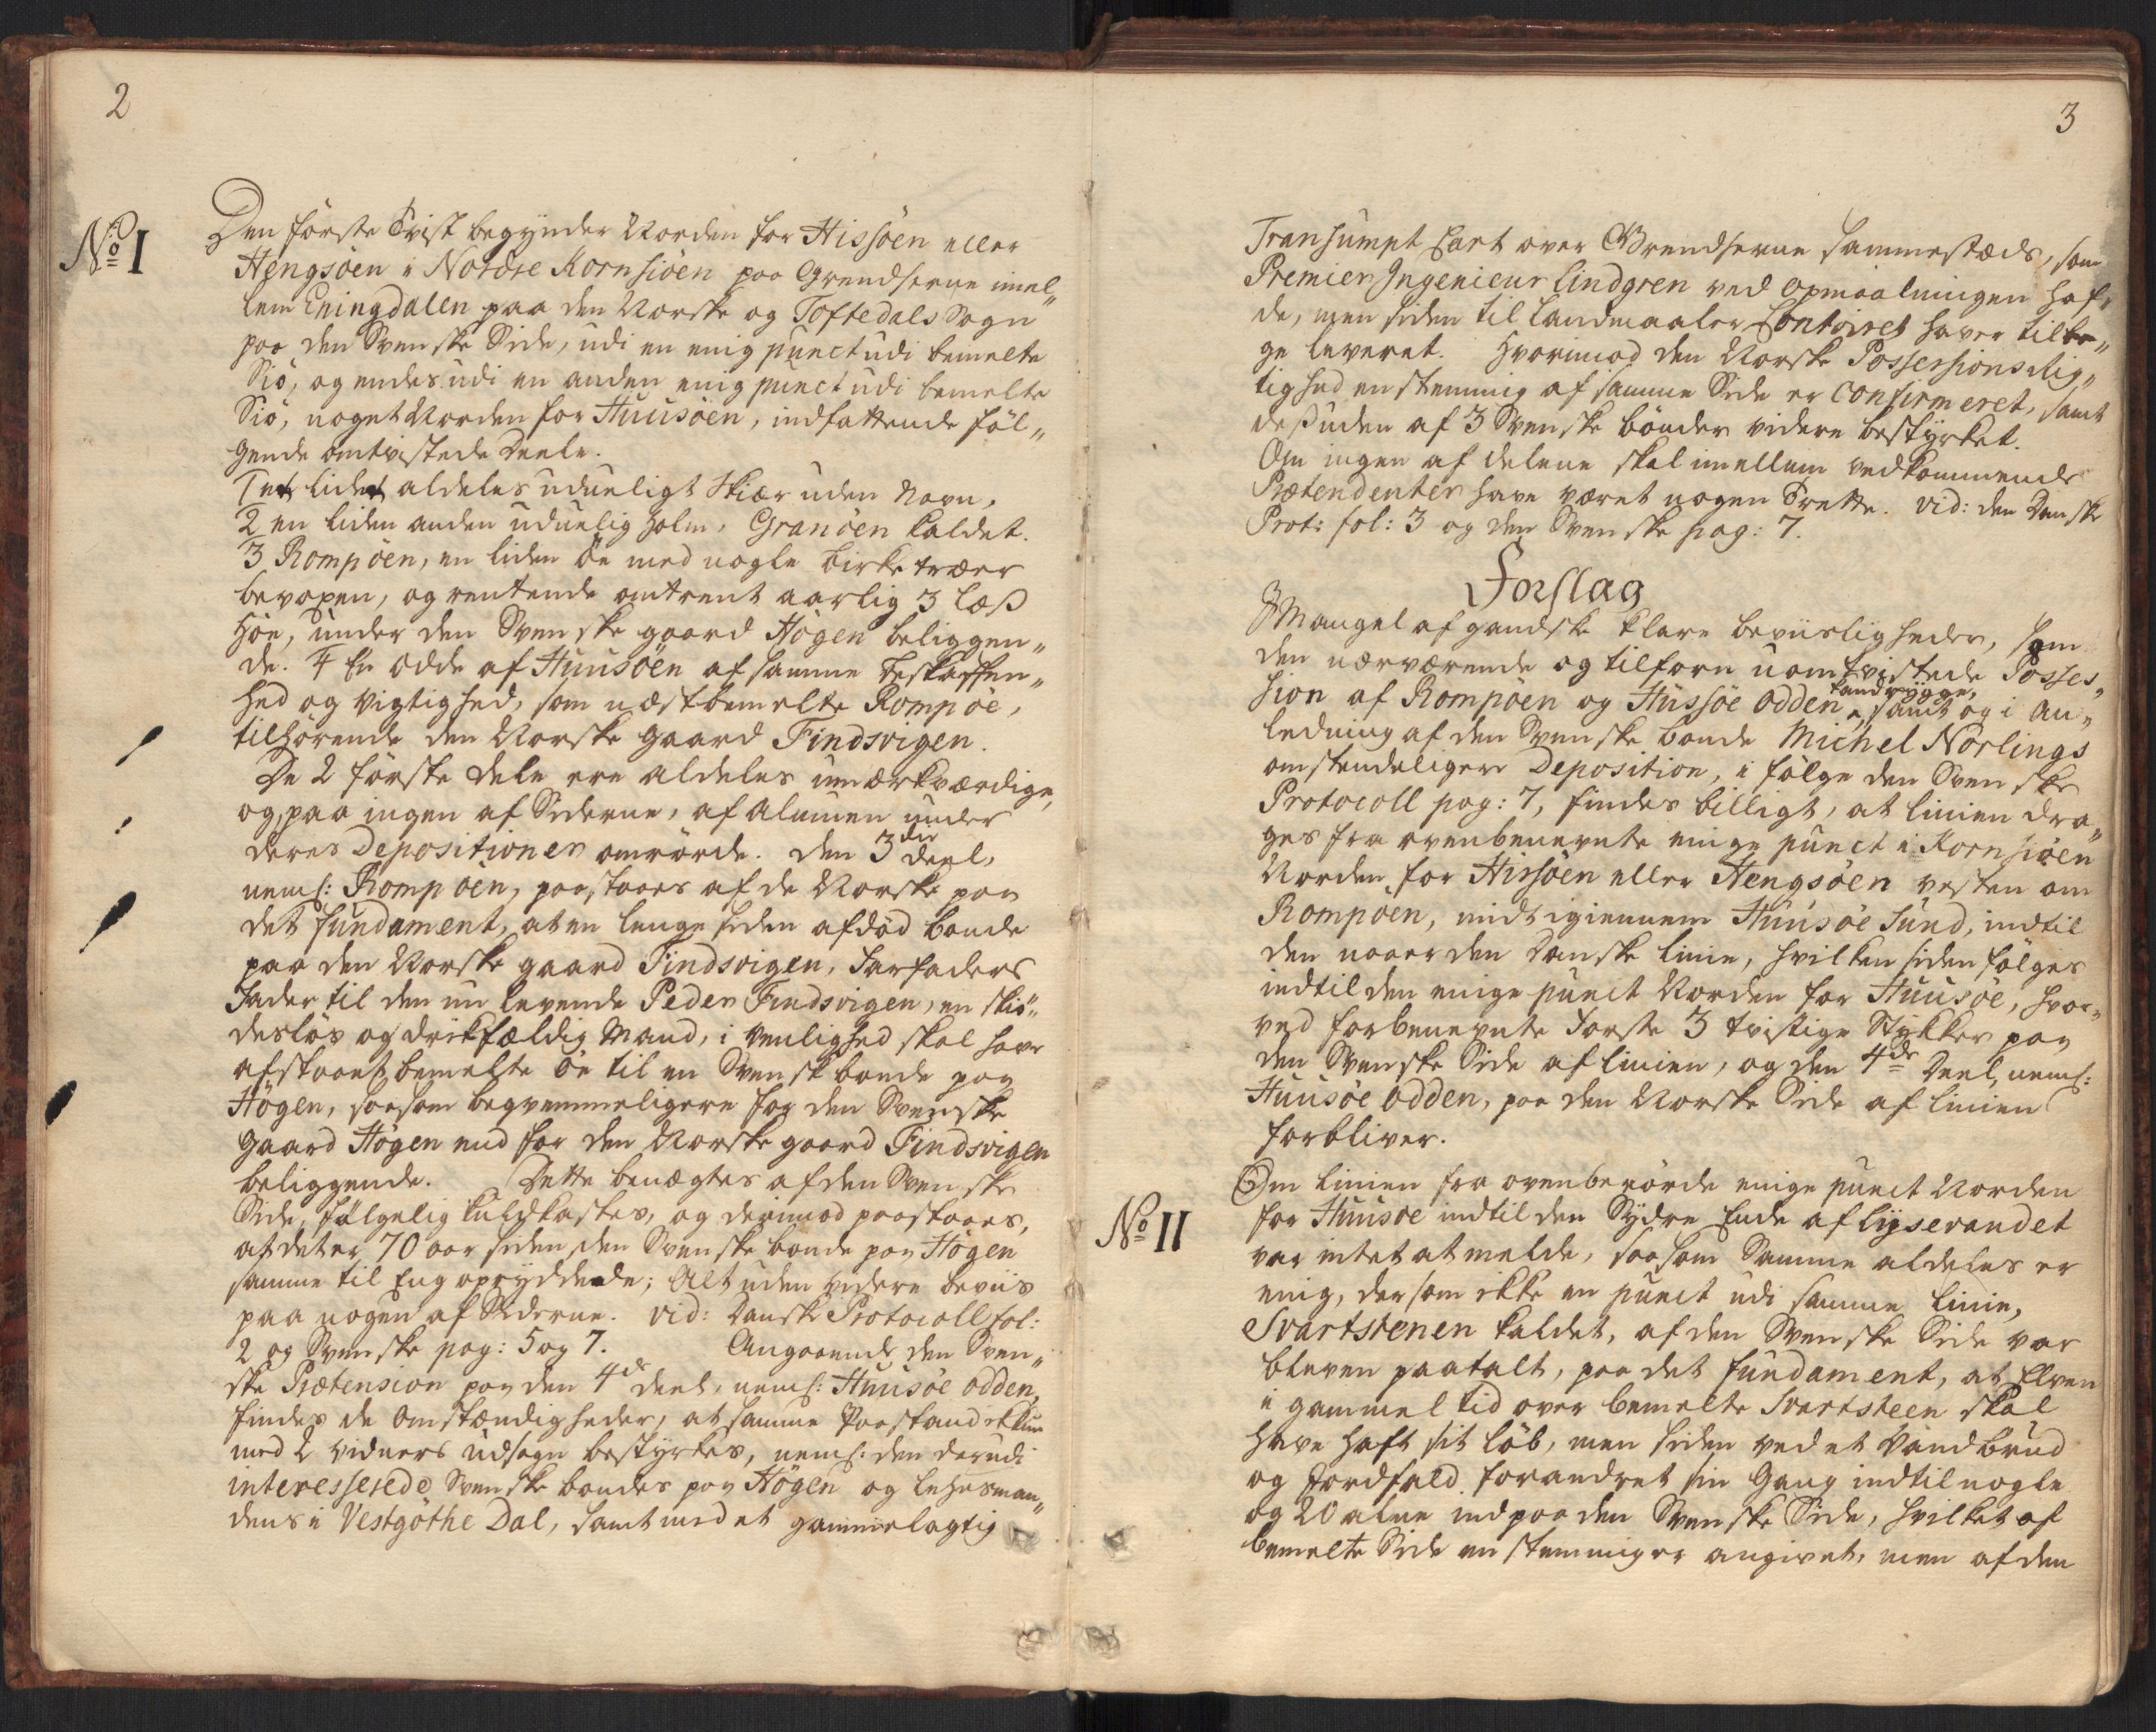 2
No I
Den förste Tvist begynder Norden for Hissöen eller
Hengsöen i Nordre Kornsiöen paa Grendserne imel„
lem Eningdalen paa den Norske og Toftedals Sogn
paa den Svenske Side, udi en enig punct udi bemelte
Siö, og endes udi en anden enig punct udi bemelte
Siö, noget Norden for Huusöen, indfattende föl„
gende omtvistede Deele.
1 et lidet aldeles udueligt Skiær uden Navn.
2 en liden anden uduelig holm, Granöen kaldet.
3 Rompöen, en liden öe med nogle birketræer
bevoxen, og rentende omtrent aarlig 3 læs
Höe, under den Svenske gaard Högen beliggen„
de. 4 En odde af Huusöen af samme beskaffen„
hed og vigtighed, som næstbemelte Rompöe,
tilhörende den Norske gaard Findsvigen.
De 2 förste dele ere aldeles umærkværdige,
og paa ingen af Siderne, af Almuen under
deres Depositioner omrörde. Den 3die deel,
neml: Rompöen, paastaaes af de Norske paa
det fundament, at en lenge siden afdöd bonde
paa den Norske gaard Findsvigen, Farfaders
Fader til den nu levende Peder Findsvigen, en skiö„
deslös og drikfældig Mand, i venlighed skal have
afstaaet bemelte öe til en Svensk bonde paa
Högen, saasom beqvemmeligere for den Svenske
Gaard Högen end for den Norske gaard Findsvigen
beliggende. Dette benægtes af den Svenske
Side, fölgelig kuldkastes, og derimod paastaaes,
at det er 70 aar siden den Svenske bonde paa Högen
samme til Eng opryddede; Alt uden videre beviis
paa nogen af Siderne. vid: Danske Protocoll fol:
2 og Svenske pag: 5 og 7. Angaaende den Sven„
ske Prætension paa den 4de deel, neml: Huusöe odden,
findes de omstændigheder, at samme Paastand ikkun
med 2 vidners udsagn bestyrkes, neml: den derudi
interesserede Svenske bondes paa Högen og lehnsman„
dens i Vestgöthe Dal, samt med et gammelagtig
3
Transumpt Cart over Grendserne sammestæds, som
Premier Ingenieur Lindgren ved opmaalningen haf„
de, men siden til Landmaaler Contoiret haver tilba„
ge leveret. Hvorimod den Norske Possessions rig„
tighed enstemmig af samme Side er Confirmeret, samt
desuden af 3 Svenske bönder videre bestyrket.
Om ingen af delene skal imellem vedkommende
Prætendenter have været nogen Trette. vid: den Danske
Prot: fol: 3 og den Svenske pag: 7.
Forslag
I Mangel af gandske klare beviisligheder, som
den nærværende og tilforn uomtvistede Posses„
sion af Rompöen og Hussöe Odden Landrygge, samt og i an„
ledning af den Svenske bonde Michel Norlings
omstendeligere Deposition, i fölge den Svenske
Protocoll pag: 7, findes billigt, at linien dra„
ges fra ovenbenevnte enige punct i Kornsiöen
Norden for Hissöen eller Hengsöen vesten om
Rompöen, midt igiennem Huusöe Sund, indtil
den naaer den Danske linie, hvilken siden fölges
indtil den enige punct Norden for Huusöe, hvor„
ved forbenevnte Förste 3 tvistige Stykker paa
den Svenske Side af linien, og den 4de Deel, neml:
Huusöe Odden, paa den Norske Side af linien
forbliver.
No II
Om linien fra ovenberörde enige punct Norden
for Huusöe indtil den Sydre Ende af Lysevandet
var intet at melde, saasom Samme aldeles er
enig, dersom ikke en punct udi samme linie,
Svartstenen kaldet, af den Svenske Side var
bleven paatalt, paa det fundament, at Elven
i gammel tid over bemelte Svartsteen skal
have haft sit löb, men siden ved et Vandbrud
og Jordfald forandret sin Gang indtil nogle
og 20 alne ind paa den Svenske Side, hvilket af
bemelte Side enstemmig er angivet, men af den